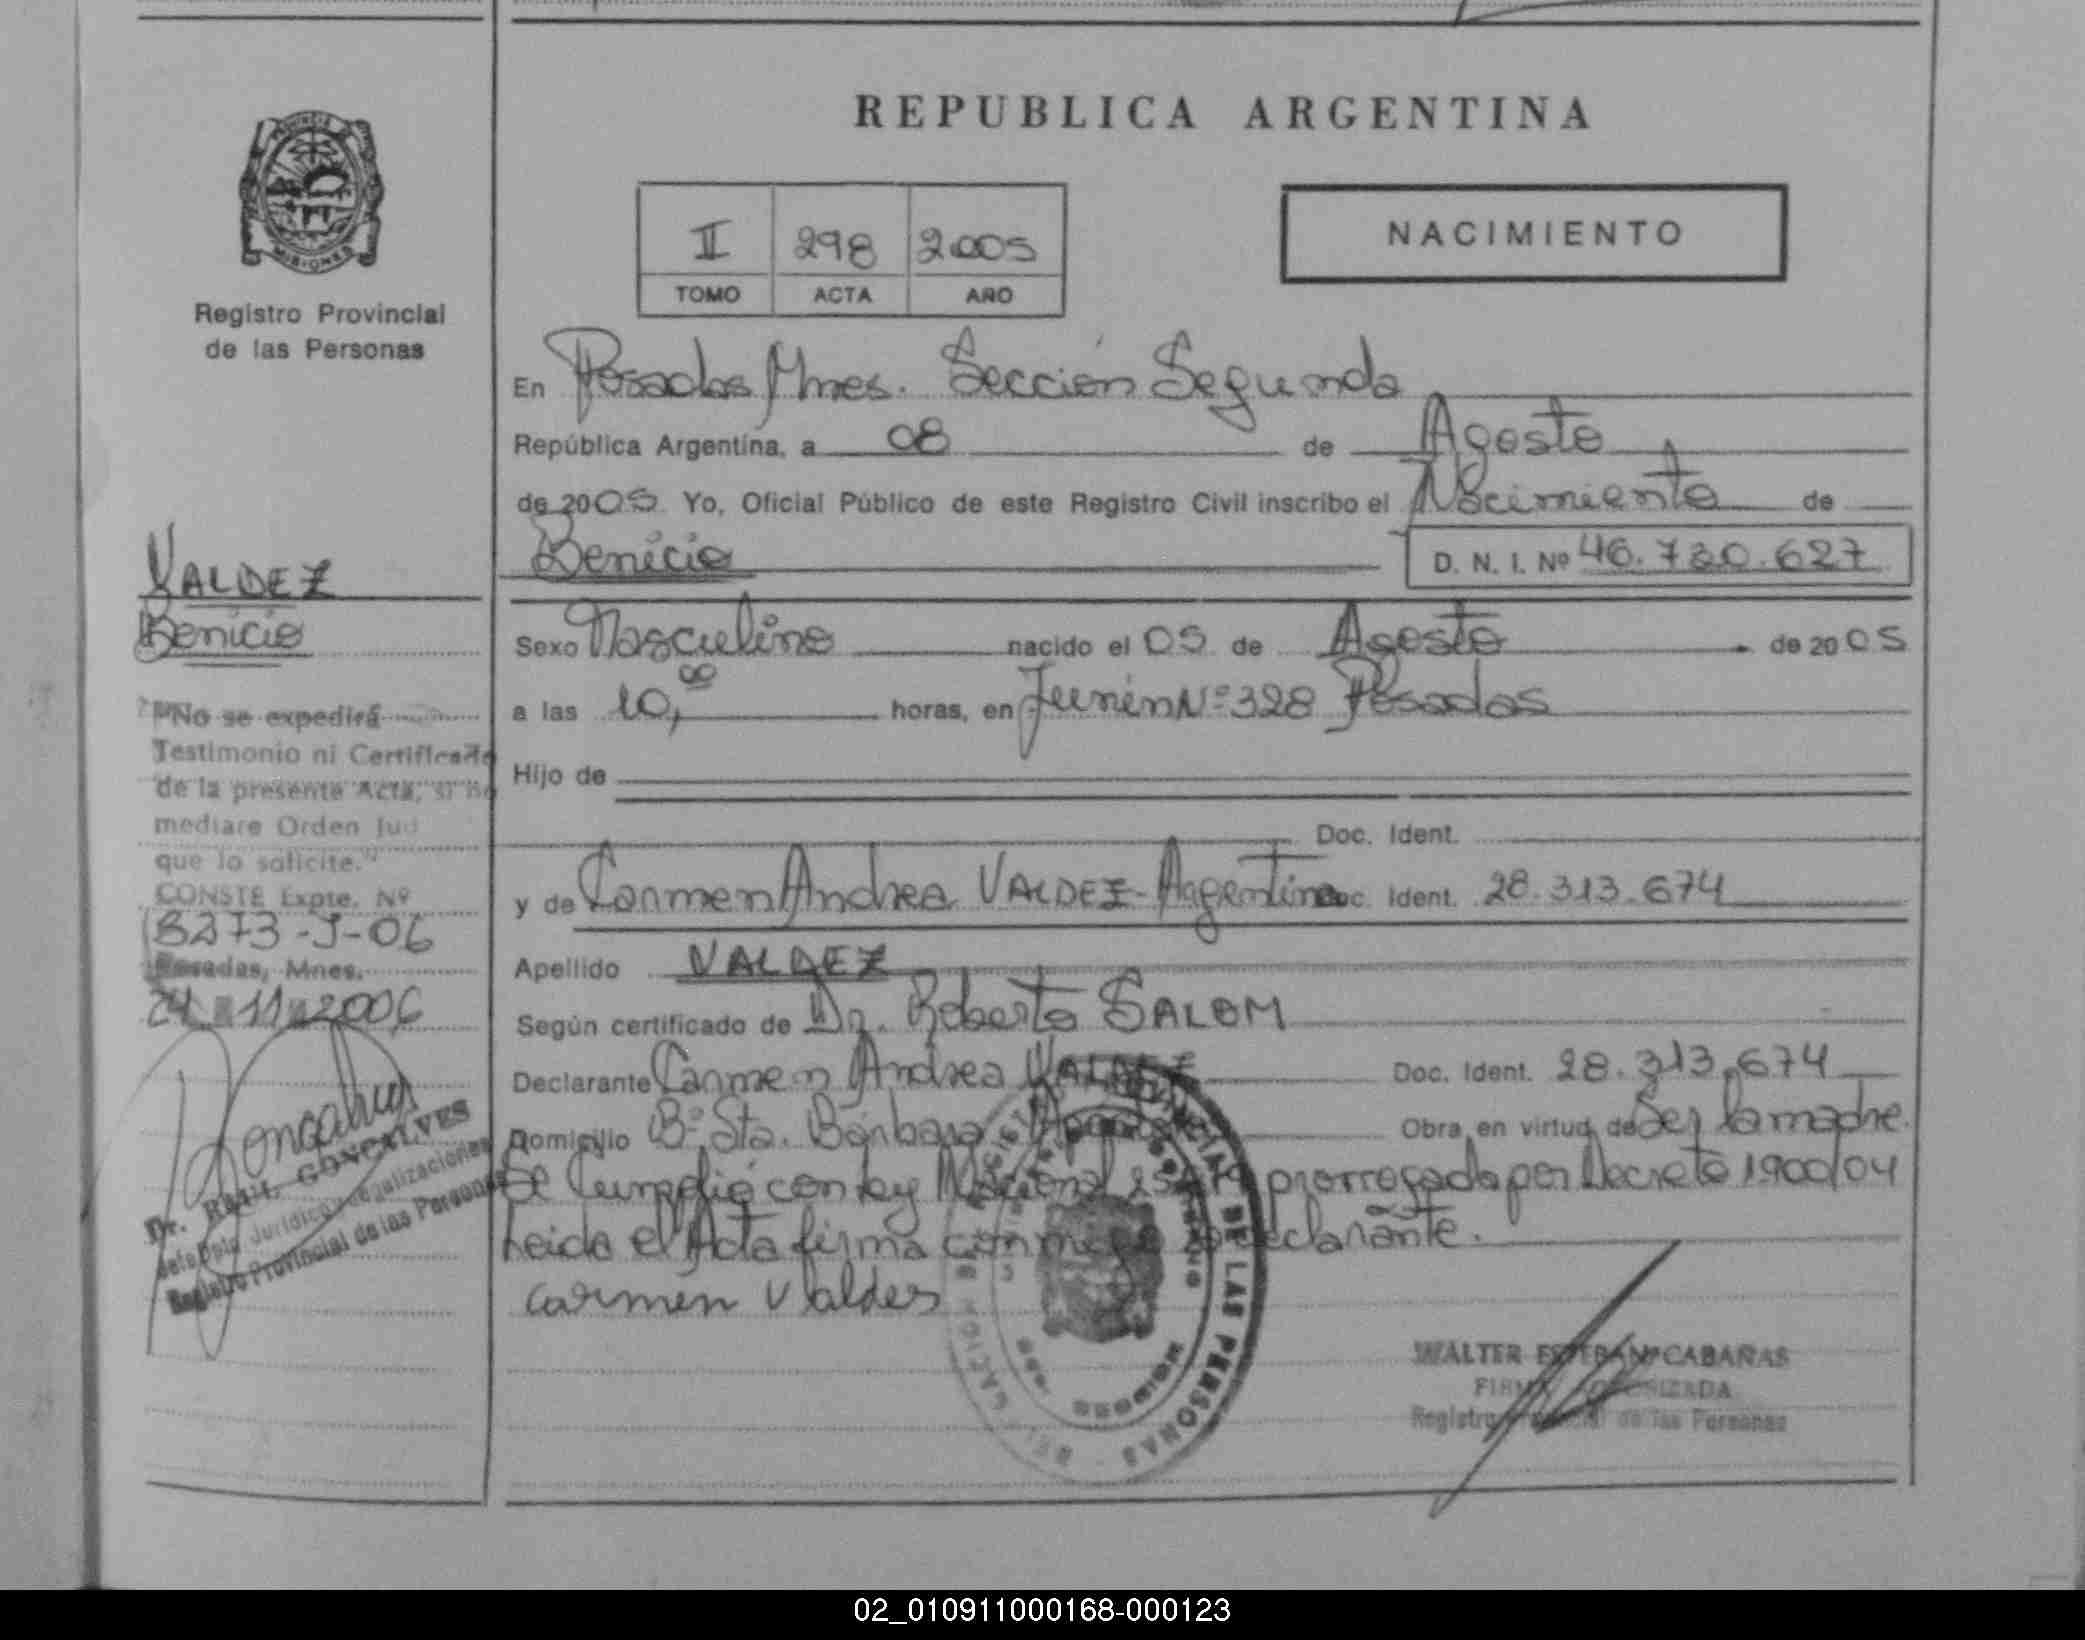 REPUBLICA ARGENTINA
PROVINCIA DE
MISIONES
Registro Provincial
de las Personas
II 298 2005
TOMO ACTA AÑO
NACIMIENTO
En Posadas Mnes. Sección Segunda
República Argentina, a 08 de Agosto
de 2005 Yo, Oficial Público de este Registro Civil inscribo el Nacimiento de
Benicio D. N. I. Nº 46.730.627
Sexo Masculino nacido el 05 de Agosto de 2005
a las 10,00 horas, en Junín Nº 328 Posadas
Hijo de
Doc. Ident.
y de Carmen Andrea VALDEZ - Argentina Doc. Ident. 28.313.674
Apellido VALDEZ
Según certificado de Dr. Roberto SALOM
Declarante Carmen Andrea VALDEZ Doc. Ident. 28.313.674
Domicilio Bº Sta. Bárbara Obra en virtud de Ser la madre.
Se Cumplió con ley Nacional prorrogada por Decreto 1900/04
Leida el Acta firma conmigo declarante.
Carmen Valdes
REGISTRO PROVINCIAL DE LAS PERSONAS
MISIONES
WALTER ESTEBAN CABAÑAS
FIRMA AUTORIZADA
Registro Provincial de las Personas
VALDEZ
Benicio
"No se expedirá
Testimonio ni Certificado
de la presente Acta, si no
mediare Orden Jud
que lo solicite."
CONSTE Expte. Nº
3273-J-06
Posadas, Mnes.
24 11 2006
Goncalves
Dr. RAUL GONCALVES
Jefe Dpto Jurídico Legalizaciones
Registro Provincial de las Personas
02_010911000168-000123